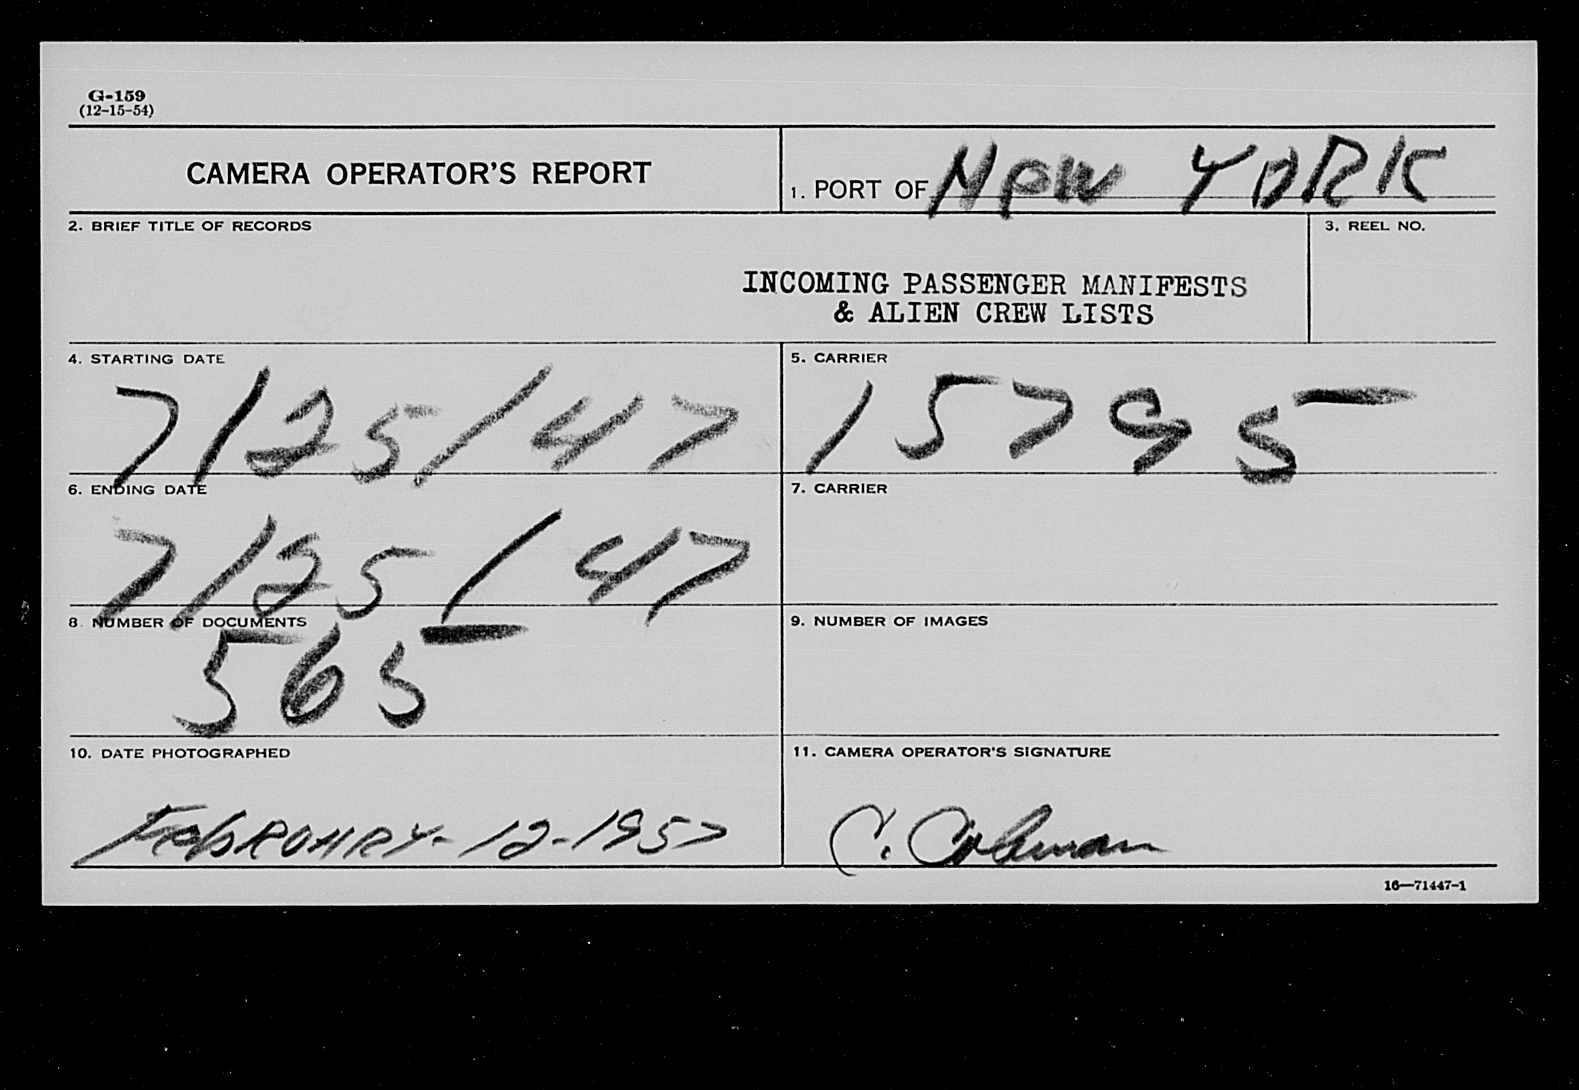 G-159
(12-15-54)
CAMERA OPERATOR'S REPORT
1. PORT OF NEW YORK
2. BRIEF TITLE OF RECORDS
INCOMING PASSENGER MANIFESTS
& ALIEN CREW LISTS
3. REEL NO.
4. STARTING DATE
7/25/47
5. CARRIER
15795
6. ENDING DATE
7/25/47
7. CARRIER
8. NUMBER OF DOCUMENTS
565
9. NUMBER OF IMAGES
10. DATE PHOTOGRAPHED
FebRUARY-12-1957
11. CAMERA OPERATOR'S SIGNATURE
C. Coleman
16—71447-1